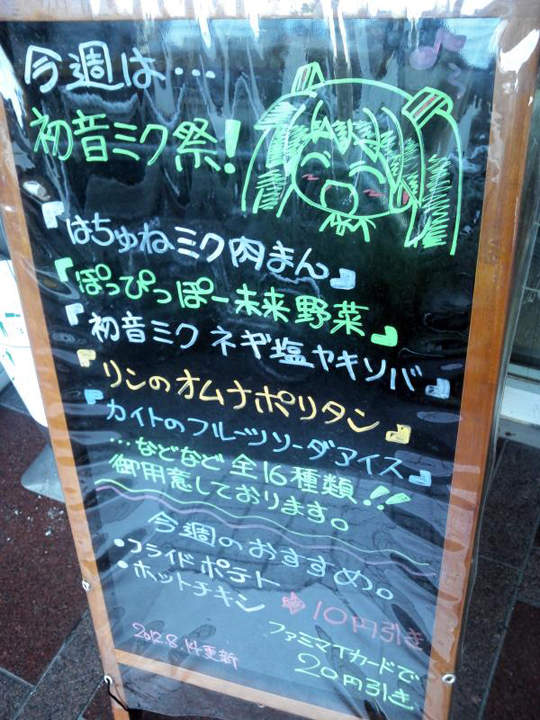 今週は…
初音ミク祭!
『はちゅねミク肉まん』
『ぽっぴっぽー未来野菜』
『初音ミク ネギ塩ヤキソバ』
『リンのオムナポリタン』
『カイトのフルーツソーダアイス』
…などなど全16種類!!
御用意しております。
今週のおすすめ。
・フライドポテト
・ホットチキン
10円引き
ファミマTカードで
20円引き
2012.8.14更新